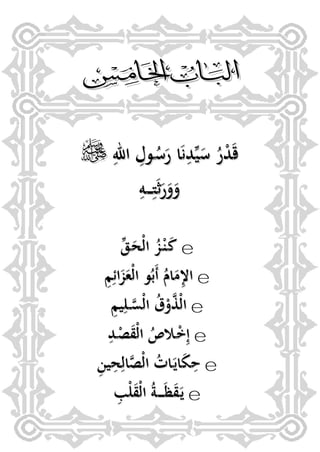 الْبَابُ الْخَامِسُ
قَدْرُ سَيِّدِنَا رَسُولِ اللهِ ﷺ
وَوَرَثَتِــهِ
℮ كَنْـزُ الْحَقِّ
℮ الإِمَامُ أَبُو الْعَزَائِمِ
℮ الْذَّوْقُ الْسَّـلِيمِ
℮ إِخْلاصُ الْقَصْدِ
℮ حِكَايَاتُ الْصَّالِحِينِ
℮ يَقَظَــةُ الْقَلْبِ